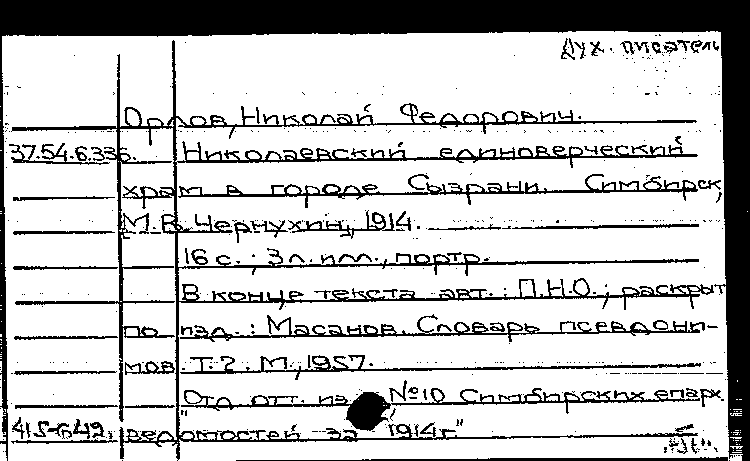 дух. писатель
Орлов, Николай Федорович.
37.54.6.336. Николаевский единоверческий
храм в городе Сызрани. Симбирск,
[М.В. Чернухин], 1914.
16 с.; 3 л. илл., портр.
В конце текста авт.: П.Н.О.; раскрыт
по изд.: Масанов. Словарь псевдони-
мов. Т.2. М., 1957.
Отд. отт. из № 10 "Симбирских епарх.
ведомостей за 1914 г."